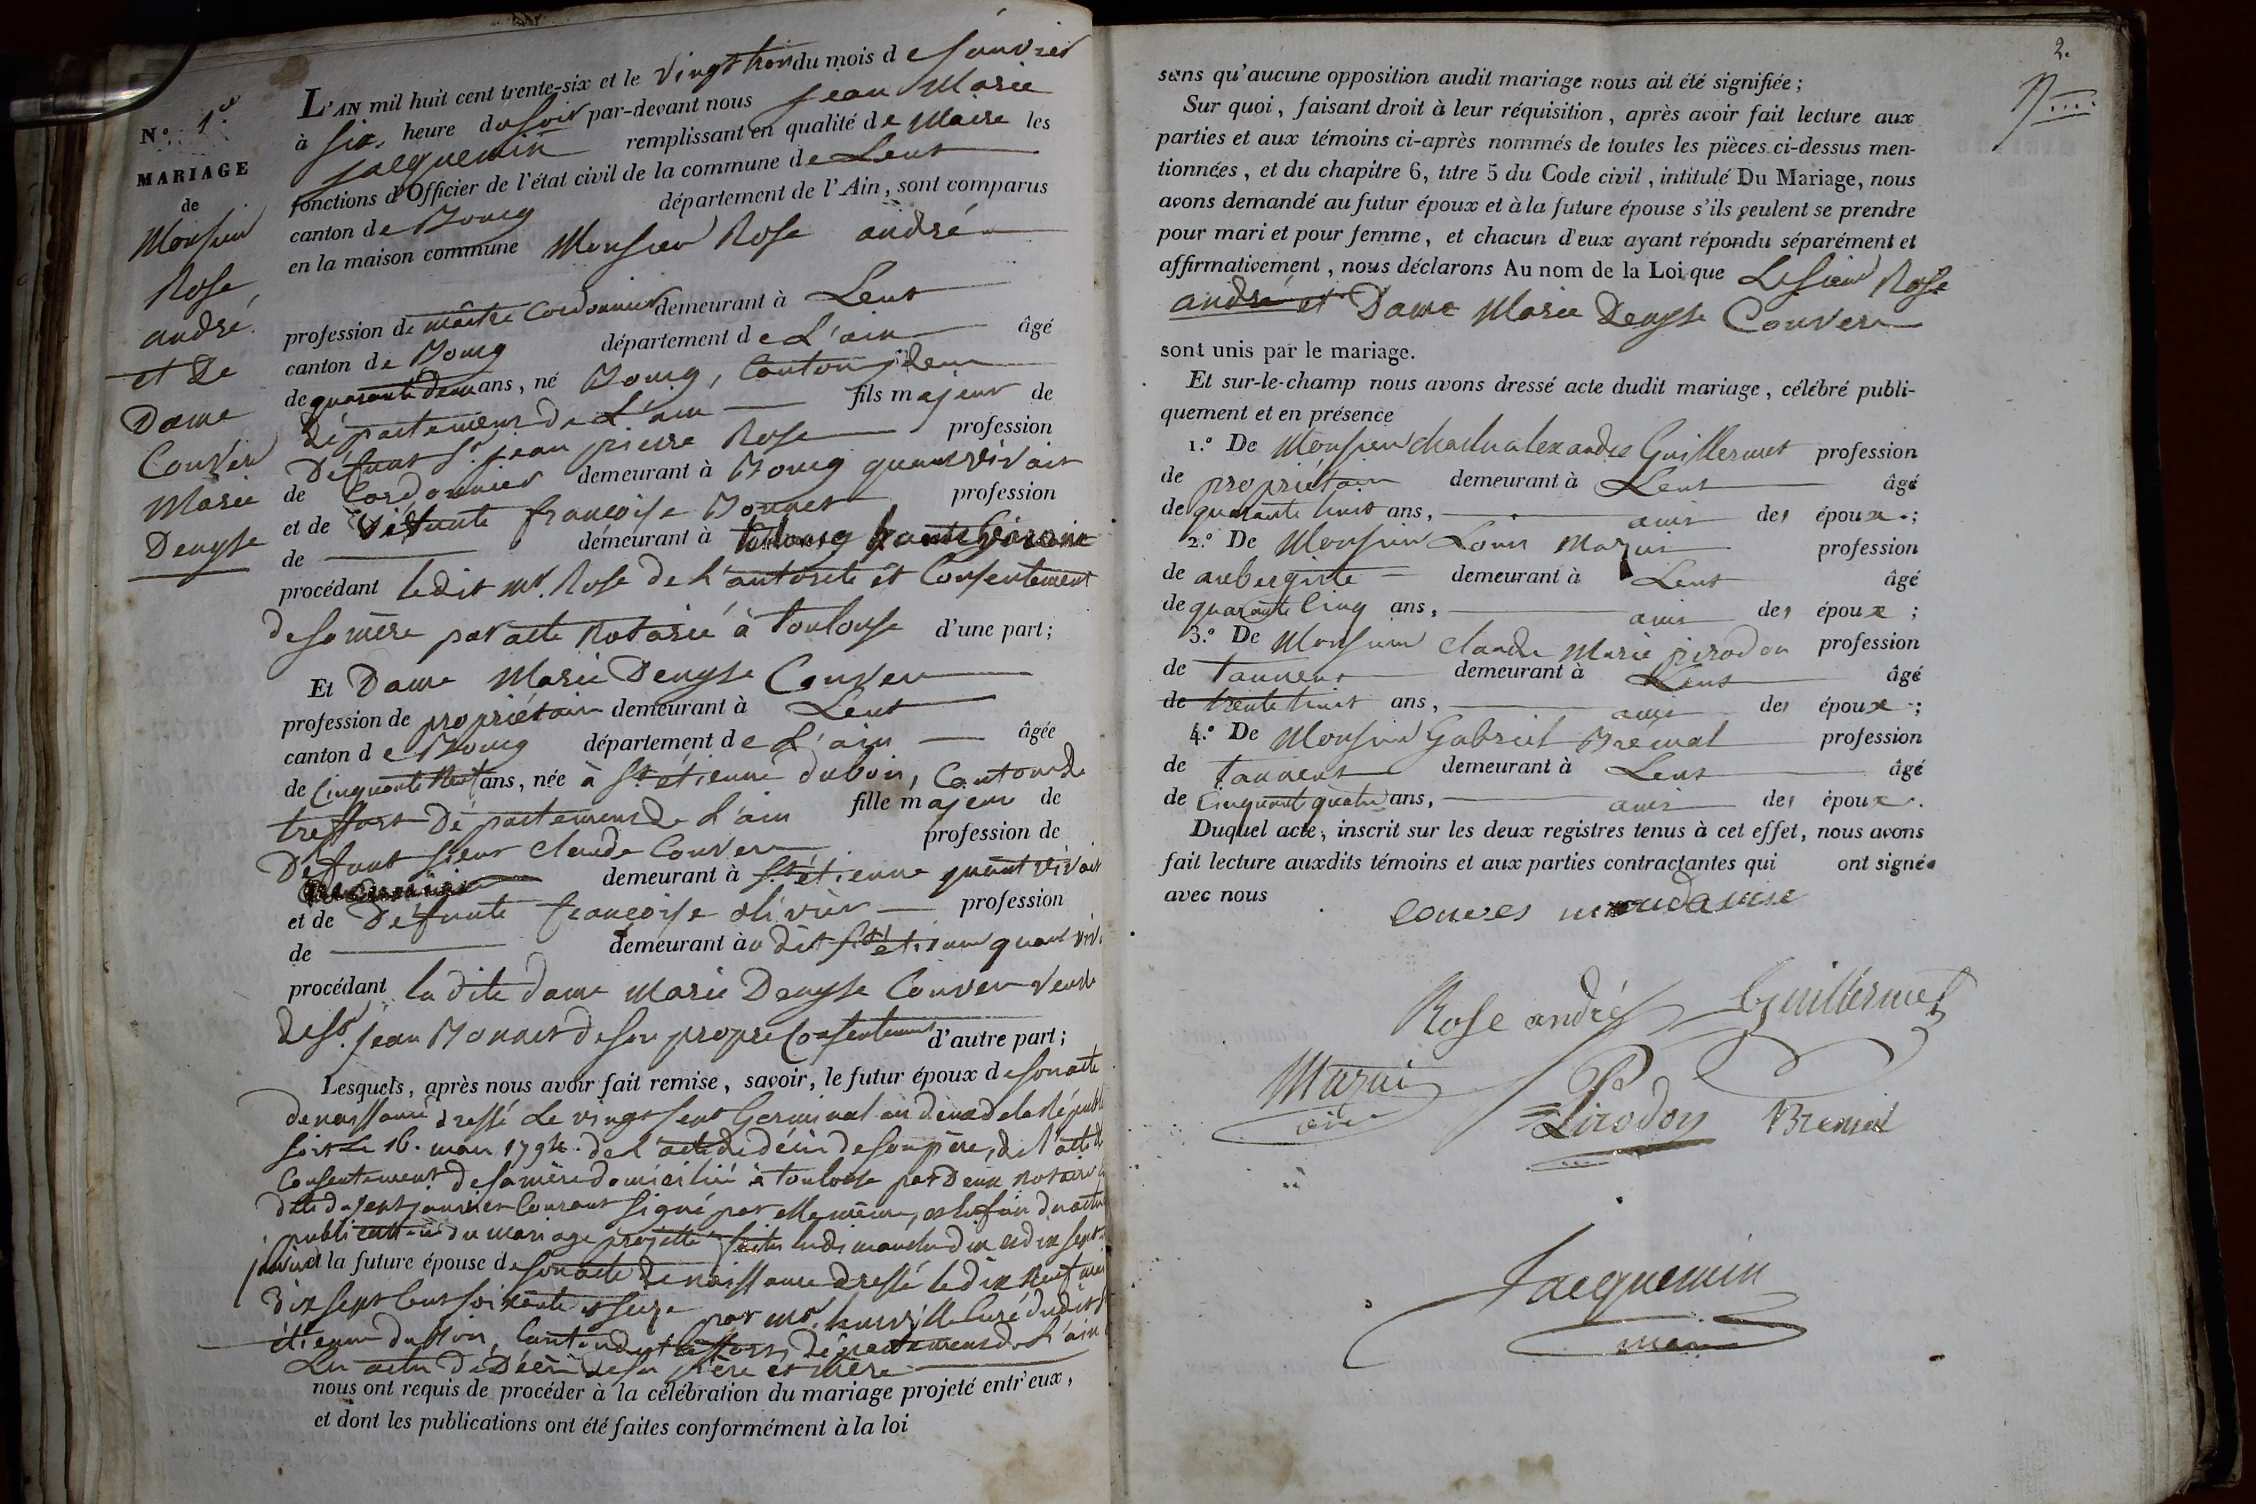 N.º 1.er
MARIAGE
de
Monsieur
Rose
andré
et de
Dame
Conver
Marie
Denyse
L'AN mil huit cent trente-six et le vingt trois du mois de janvier
à six heure du soir par-devant nous jean Marie
jacquemin remplissant en qualité de Maire les
fonctions d'Officier de l'état civil de la commune de Lent
canton de Bourg département de l'Ain, sont comparus
en la maison commune Monsieur Rose andré
profession de maître Cordonnier demeurant à Lent
canton de Bourg département de L'ain âgé
de quarante deux ans, né Bourg, Canton idem
département de L'ain fils majeur de
Défunt Sr. jean pierre Rose profession
de Cordonnier demeurant à Bourg quand vivait
et de françoise Bonnet profession
de demeurant à
procédant ledit mr. Rose de L'autorité et Consentement
de sa mère par acte Notarié à toulouse d'une part;
Et Dame Marie Denyse Conver
profession de propriétaire demeurant à Lent
canton de Bourg département de L'ain âgée
de Cinquante Neuf ans, née à St. étienne dubois, Canton de
treffort Département de L'ain fille majeur de
Défunt sieur Claude Conver profession de
demeurant à St. étienne quant vivait
et de Défunte françoise olivier profession
de demeurant àu dit St. étienne quant viv
procédant la dite dame Marie Denyse Conver veuve
de Sr. jean Bonnet de son propre Consentement d'autre part;
Lesquels, après nous avoir fait remise, savoir, le futur époux de son acte
de naissance dressé Le vingt sept Germinal an deux de la Républ
soit Le 16. mars 1794. de L'acte de décès de son père, de l'acte de
Consentement de sa mère domiciliée à toulouse par Deux notaires
date du sept janvier Courant signé par elle même,
publication du mariage projetté faites les dimanches dix et dix sept
janvier et la future épouse de son acte de naissance dressé le dix Neuf mai
dix sept Cent soixante et seize par mr. Curé dudit St
étienne du Bois, Canton de treffort, département de L'ain
Les actes de Décès de son père et mère
nous ont requis de procéder à la célébration du mariage projeté entr'eux,
et dont les publications ont été faites conformément à la loi
2.
sans qu'aucune opposition audit mariage nous ait été signifiée;
Sur quoi, faisant droit à leur réquisition, après avoir fait lecture aux
parties et aux témoins ci-après nommés de toutes les pièces ci-dessus men-
tionnées, et du chapitre 6, titre 5 du Code civil, intitulé Du Mariage, nous
avons demandé au futur époux et à la future épouse s'ils veulent se prendre
pour mari et pour femme, et chacun d'eux ayant répondu séparément et
affirmativement, nous déclarons Au nom de la Loi que Le sieur Rose
andré et Dame Marie Denyse Conver
sont unis par le mariage.
Et sur-le-champ nous avons dressé acte dudit mariage, célébré publi-
quement et en présence
1.º De Monsieur Charles alexandre Guillermet profession
de propriétaire demeurant à Lent âgé
de quarante huit ans, amis des époux;
2.º De Monsieur Louis Mazuir profession
de aubergiste demeurant à Lent âgé
de quarante Cinq ans, amis des époux;
3.º De Monsieur Claude Marie pirodon profession
de tanneur demeurant à Lent âgé
de trente huit ans, amis des époux;
4.º De Monsieur Gabriel Brémal profession
de tanneur demeurant à Lent âgé
de Cinquante quatre ans, amis des époux.
Duquel acte, inscrit sur les deux registres tenus à cet effet, nous avons
fait lecture auxdits témoins et aux parties contractantes qui ont signé
avec nous
Rose andré Guillermet
Mazui
Pirodon Bremal
Jacquemin
maire